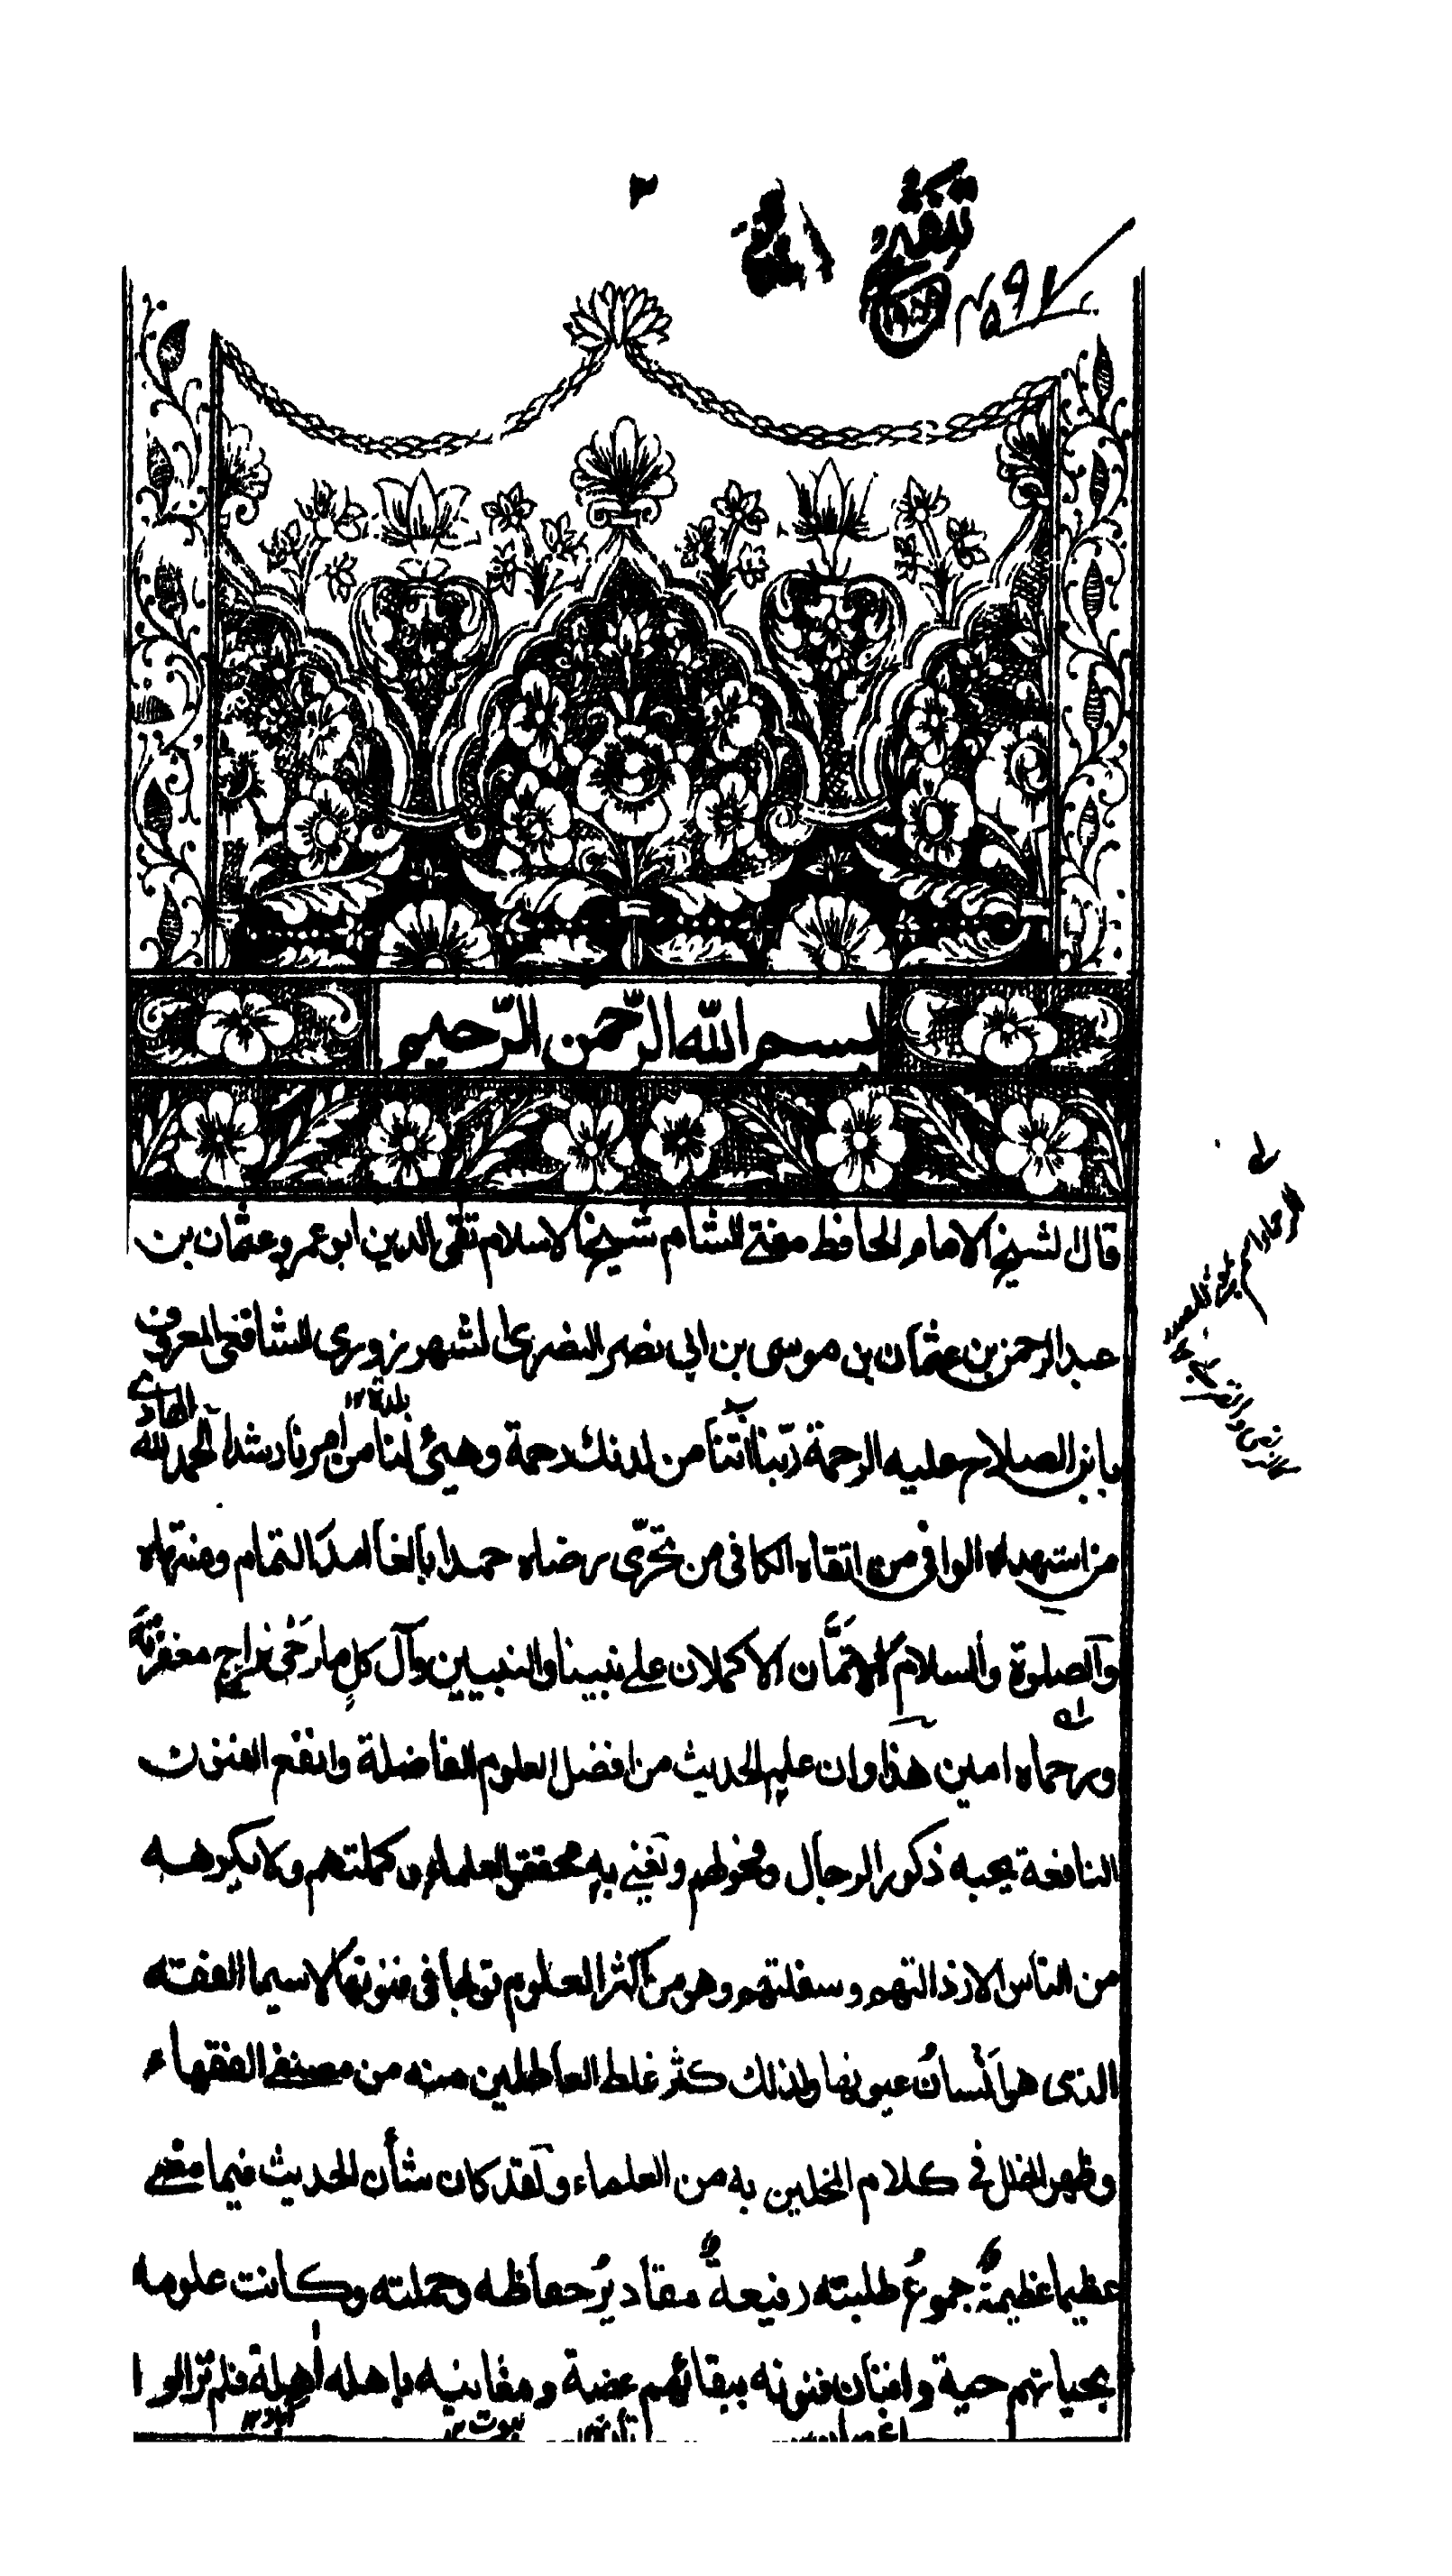 ٢
بسم الله الرّحمن الرّحيم
قال الشيخ الامام الحافظ مفتى الشام شيخ الاسلام تقى الدين ابو عمرو عثمان بن
عبد الرحمن بن عثمان بن موسى بن ابى نصر النصرى الشهرزورى الشافعى المعروف
بلدة ١٢
بابن الصلاح عليه الرحمة ربّنا اٰتنا من لدنك رحمة وهيئ لنا من امرنا رشدا الحمد لله الهادى
من استهداه الوافى من اتقاه الكافى من تحرّى رضاه حمدا بالغا امد التمام ومنتهاه
والصلوة والسلام الاتمّان الاكملان على نبينا والنبيين وآل كلٍ ما رَجٰى راج مغفرته
ورحماه امين هذا وان علم الحديث من افضل العلوم الفاضلة وانفع الفنون
النافعة يحبه ذكور الرجال وفحولهم ويعنى به محققو العلماء وكملتهم ولا يكرهه
من الناس الا رذالتهم وسفلتهم وهو من اكثر العلوم تولجا فى فنونها لا سيما الفقه
الذى هو انسانُ عيونها ولذلك كثر غلط العاطلين منه من مصنفى الفقهاء
وظهر الخلل فى كلام المخلين به من العلماء ولقد كان شأن الحديث فيما مضى
عظيما عظيمةً جموعُ طلبته رفيعةً مقاديرُ حفاظه وحملته وكانت علومه
بحياتهم حية وافنان فنونه ببقائهم غضة ومغانيه باهله اٰهلة فلم يزالوا
بيوت ١٢ آباد ١٢